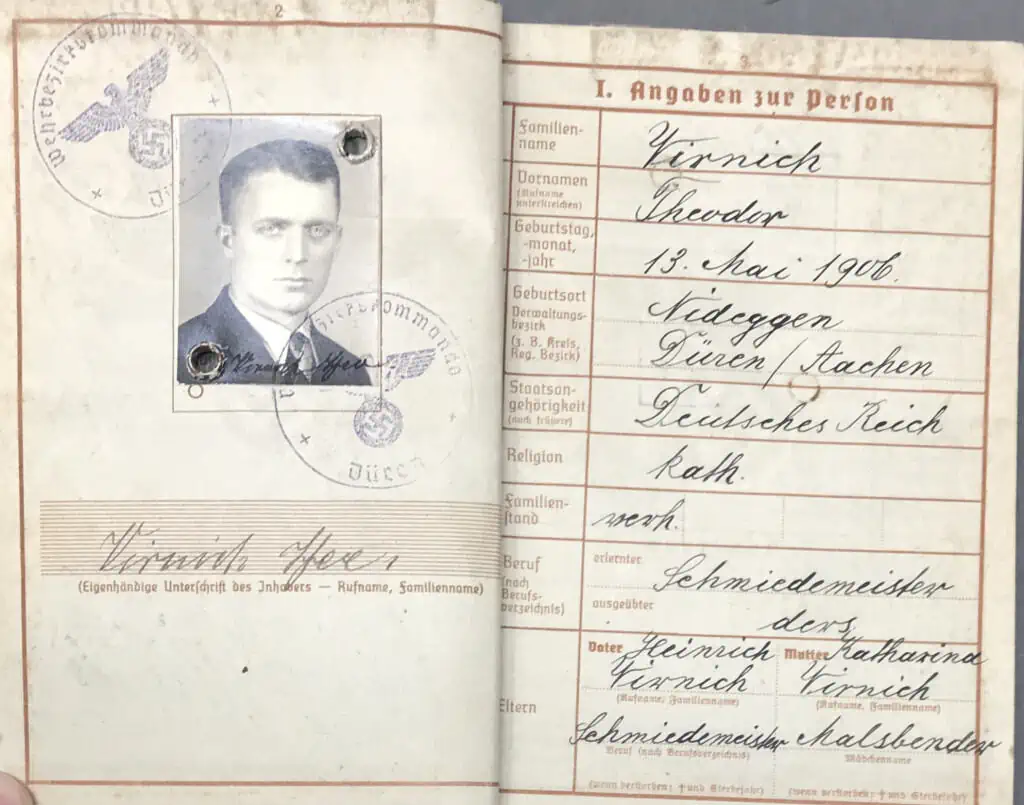 2
Wehrbezirkskommando
Düren
Wehrbezirkskommando
Düren
Virnich Theo
Virnich Theo
(Eigenhändige Unterschrift des Inhabers — Rufname, Familienname)
3
I. Angaben zur Person
Familien-
name
Virnich
Vornamen
(Rufname
unterstreichen)
Theodor
Geburtstag,
-monat,
-jahr
13. Mai 1906.
Geburtsort
Verwaltungs-
bezirk
(z. B. Kreis,
Reg. Bezirk)
Nideggen
Düren / Aachen
Staatsan-
gehörigkeit
(auch frühere)
Deutsches Reich
Religion
kath.
Familien-
stand
verh.
Beruf
(nach
Berufs-
verzeichnis)
erlernter
Schmiedemeister
ausgeübter
ders.
Eltern
Vater Heinrich
Virnich
(Rufname, Familienname)
Schmiedemeister
Beruf (nach Berufsverzeichnis)
(wenn verstorben: † und Sterbejahr)
Mutter Katharina
Virnich
(Rufname, Familienname)
Malsbender
Mädchenname
(wenn verstorben: † und Sterbejahr)